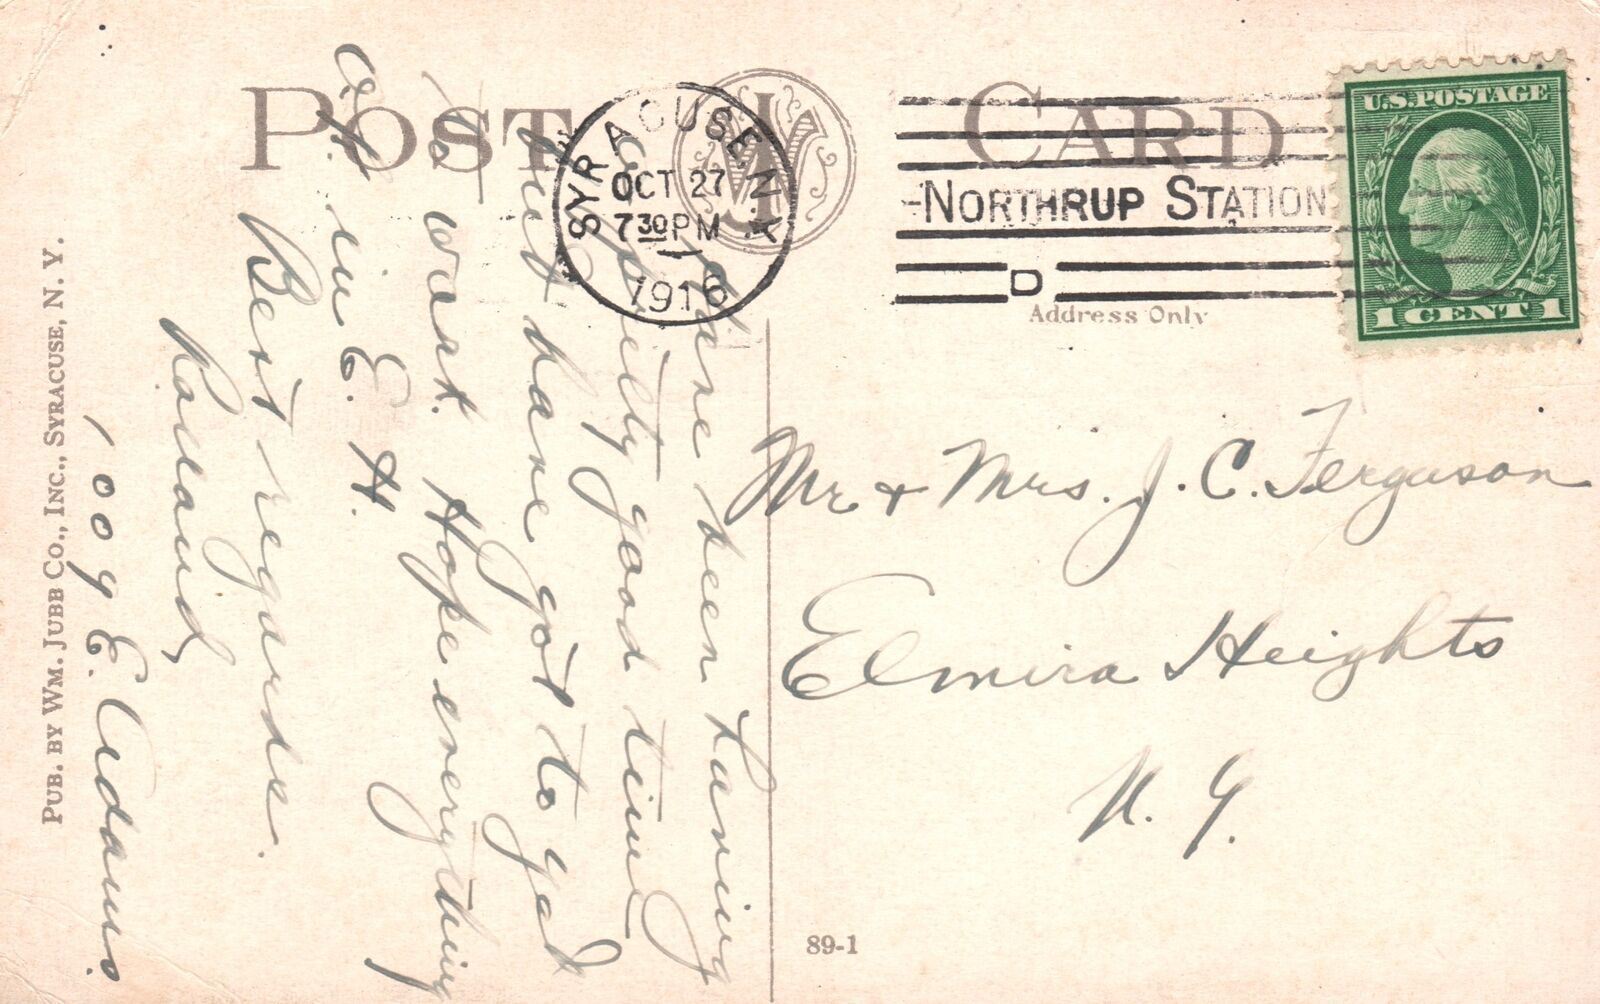 POST CARD
SYRACUSE, N.Y.
OCT 27
730 PM
1916
NORTHRUP STATION
D
U.S. POSTAGE
1 CENT 1
Address Only
Have been having
a pretty good time
but have got to get
to work. Hope everything
O.K. in E. H.
Best regards.
1009 E. Adams.
Mr & Mrs. J. C. Ferguson
Elmira Heights
N. Y.
PUB. BY WM. JUBB CO., INC., SYRACUSE, N. Y.
89-1